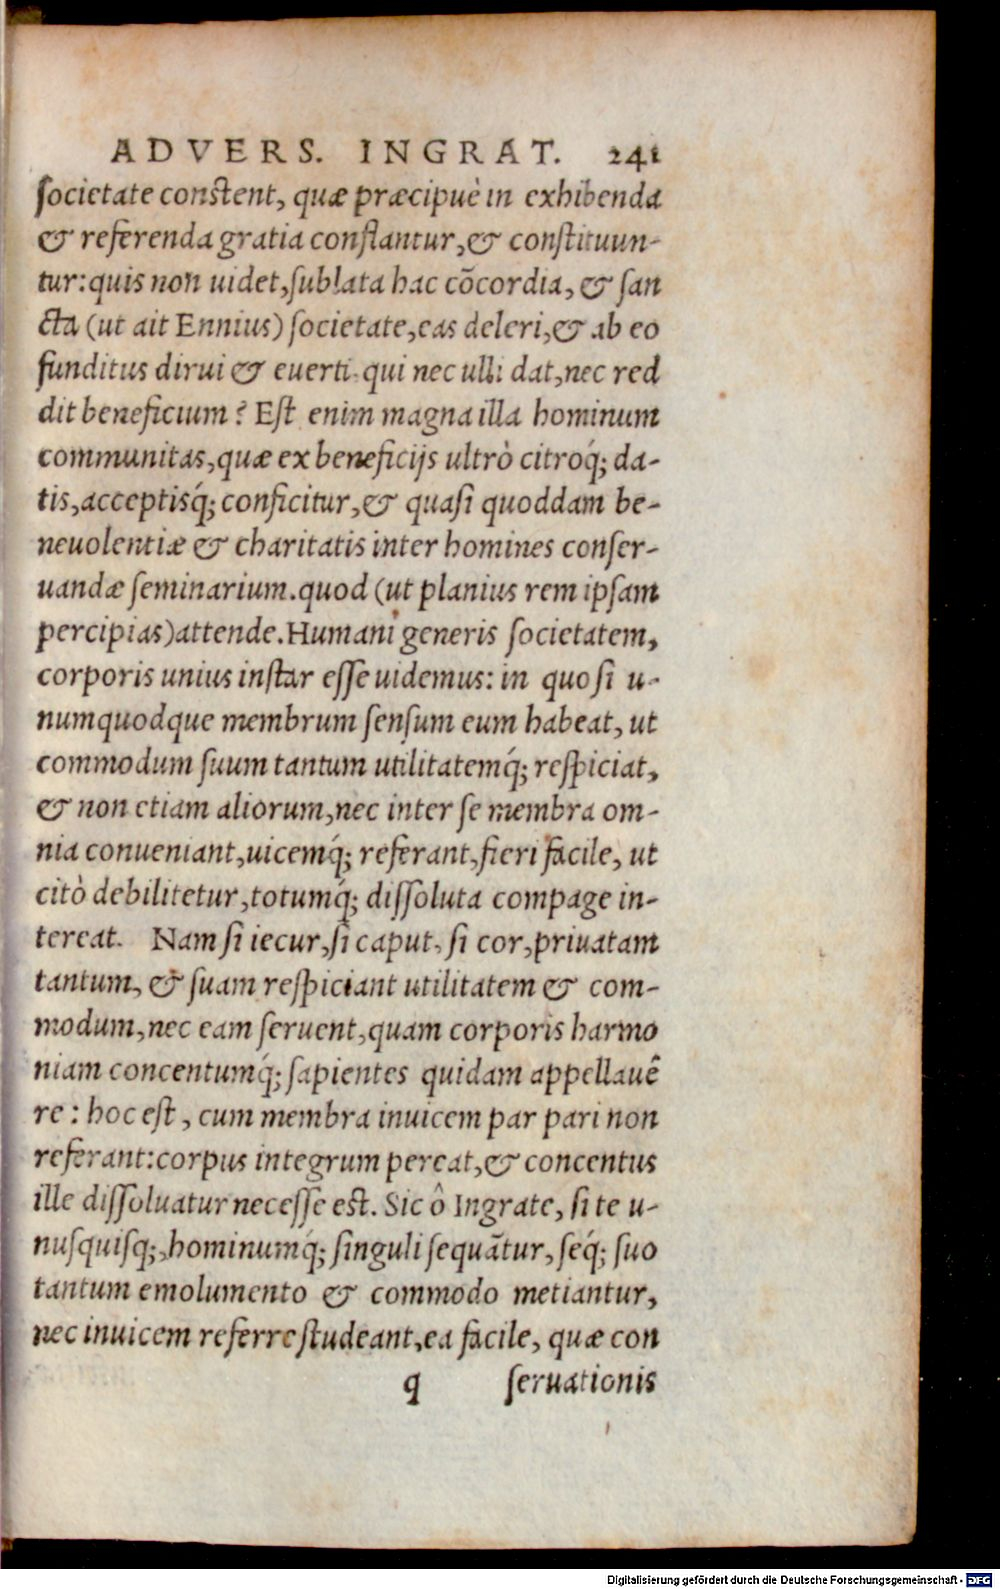 ADVERS. INGRAT. 241
ſocietate constent, quæ præcipuè in exhibenda
& referenda gratia conflantur, & conſtituun-
tur: quis non uidet, ſublata hac cōcordia, & ſan
cta (ut ait Ennius) ſocietate, eas deleri, & ab eo
funditus dirui & euerti. qui nec ulli dat, nec red
dit beneficium? Est enim magna illa hominum
communitas, quæ ex beneficijs ultrò citroq́; da-
tis, acceptisq́; conficitur, & quaſi quoddam be-
neuolentiæ & charitatis inter homines conſer-
uandæ ſeminarium. quod (ut planius rem ipſam
percipias) attende. Humani generis ſocietatem,
corporis unius instar eſſe uidemus: in quo ſi u-
numquodque membrum ſenſum eum habeat, ut
commodum ſuum tantum utilitatemq́; reſpiciat,
& non etiam aliorum, nec inter ſe membra om-
nia conueniant, uicemq́; referant, fieri facile, ut
citò debilitetur, totumq́; diſſoluta compage in-
tereat. Nam ſi iecur, ſi caput, ſi cor, priuatam
tantum, & ſuam reſpiciant utilitatem & com-
modum, nec eam ſeruent, quam corporis harmo
niam concentumq́; ſapientes quidam appellauē
re: hoc est, cum membra inuicem par pari non
referant: corpus integrum pereat, & concentus
ille diſſoluatur neceſſe est. Sic ô Ingrate, ſi te u-
nuſquiſq;, hominumq́; ſinguli ſequātur, ſeq́; ſuo
tantum emolumento & commodo metiantur,
nec inuicem referre ſtudeant, ea facile, quæ con
q ſeruationis
Digitalisierung gefördert durch die Deutsche Forschungsgemeinschaft - DFG